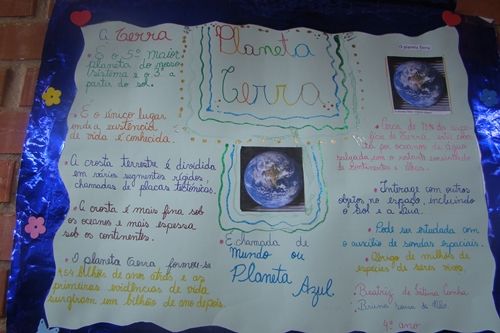 A Terra
• É o 5º maior
planeta do nosso
sistema e o 3º a
partir do sol.
• É o único lugar
onde a existência
de vida é conhecida.
• A crosta terrestre é dividida
em vários segmentos rígidos,
chamadas de placas tectônicas.
• A crosta é mais fina sob
os oceanos e mais espessa
sob os continentes.
• O planeta Terra formou-se
bilhões de ano atrás, e as
primeiras evidências de vida
surgiram um bilhões de ano depois.
Planeta
Terra
• É chamada de
Mundo ou
Planeta
Azul
O planeta Terra
• Cerca de 71% da
da Terra, está
por oceanos de água
salgada com o restante
de continentes e ilhas.
• Interage com outros
objetos no espaço, incluindo
o Sol e a Lua.
• Pode ser estudada com
o auxílio de sondas espaciais.
• Abrigo de milhões de
espécies de seres vivos.
Beatriz de Fátima Cunha
Bruna
4º ano